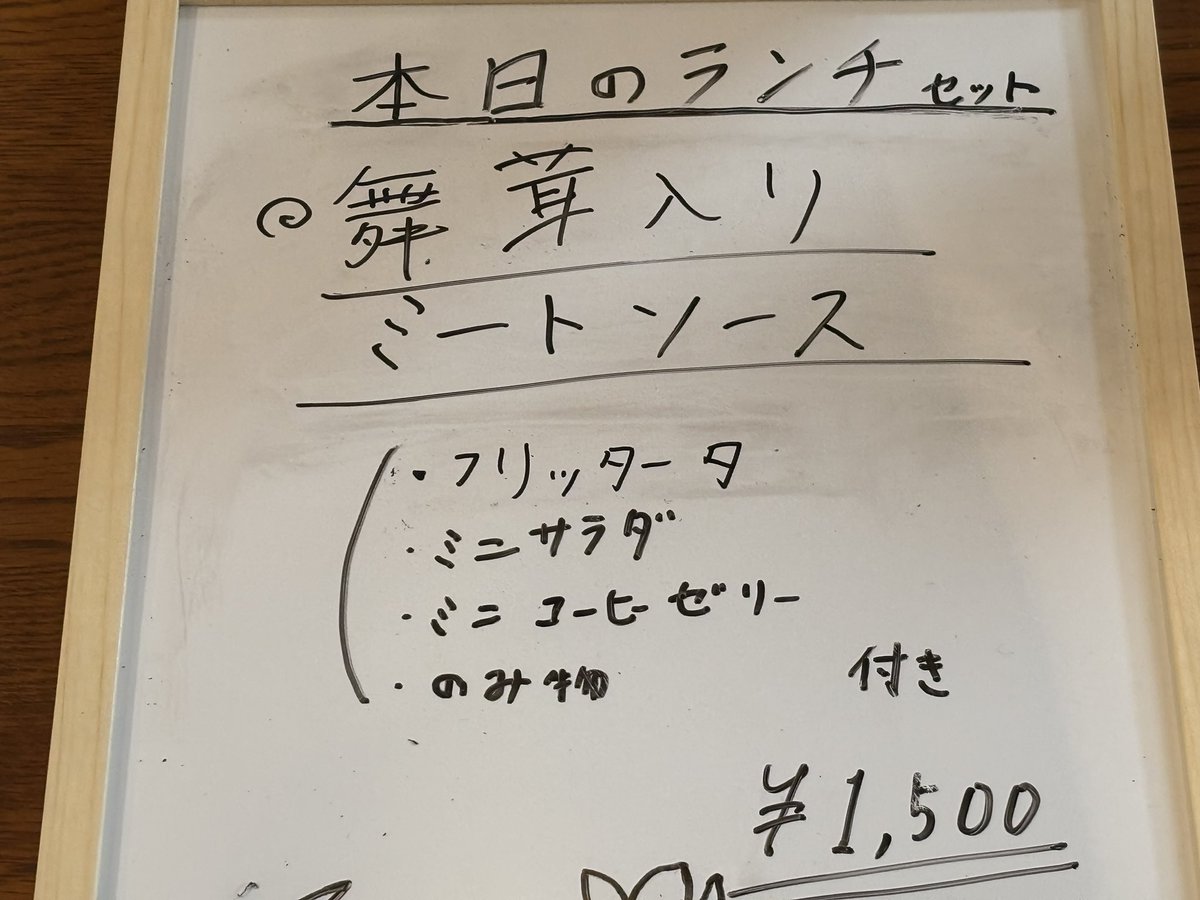 本日のランチセット
舞茸入り
ミートソース
・フリッタータ
・ミニサラダ
・ミニコーヒーゼリー
・のみ物 付き
¥1,500